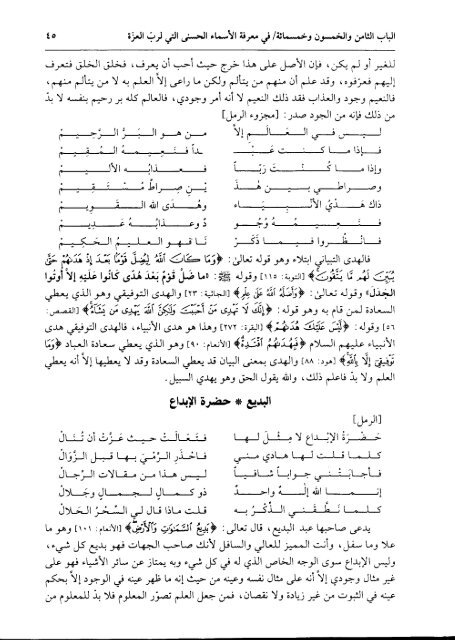 الباب الثامن والخمسون وخمسمائة/ في معرفة الأسماء الحسنى التي لربّ العزة ٤٥
للغير أو لم يكن، فإن الأصل على هذا خرج حيث أحب أن يعرف، فخلق الخلق فتعرف
إليهم فعرّفوه، وقد علم أن منهم من يتألم ولكن ما راعى إلاّ العلم به لا من يتألم منهم،
فالنعيم وجود والعذاب فقد ذلك النعيم لا أنه أمر وجودي، فالعالم كله بر رحيم بنفسه لا بدّ
من ذلك فإنه من الجود صدر: [مجزوء الرمل]
ليـس فـي العـالـم إلاّ مـن هـو البـرّ الرّحيـمُ
فـإذا مـا كـنـت عَبْـ ـداً فـنـعـيـمـه الـمـقـيـمُ
وإذا مـا كُـنْـتَ رَبّـاً فـعـذابُـه الألـيـمُ
وصـراطـي بـيـن هـذ يْـن صِـراطٌ مُـسْـتـقـيـمُ
ذاك هَـدْيُ الأنْـبـيـاء وهُـدَى الله الـقـويـمُ
فـنـعـيـمـه وُجُـو دٌ وعـذابُـه عـديـمُ
فـانـظـروا فـيـمـا ذَكَـرْ نـا فـهـو العـلـيـمُ الحـكـيـمُ
فالهدى التبياني ابتلاء وهو قوله تعالى: ﴿وَمَا كَانَ اللَّهُ لِيُضِلَّ قَوْمًا بَعْدَ إِذْ هَدَاهُمْ حَتَّى
يُبَيِّنَ لَهُم مَّا يَتَّقُونَ﴾ [التوبة: ١١٥] وقوله ﷺ: «ما ضَلَّ قَوْمٌ بَعْدَ هُدًى كَانُوا عَلَيْهِ إِلاَّ أُوتُوا
الجَدَلَ» وقوله تعالى: ﴿وَأَضَلَّهُ اللَّهُ عَلَى عِلْمٍ﴾ [الجاثية: ٢٣] والهدى التوفيقي وهو الذي يعطي
السعادة لمن قام به وهو قوله: ﴿إِنَّكَ لَا تَهْدِي مَنْ أَحْبَبْتَ وَلَكِنَّ اللَّهَ يَهْدِي مَن يَشَاءُ﴾ [القصص:
٥٦] وقوله: ﴿لَيْسَ عَلَيْكَ هُدَاهُمْ﴾ [البقرة: ٢٧٢] وهذا هو هدى الأنبياء، فالهدى التوفيقي هدى
الأنبياء عليهم السلام ﴿فَبِهُدَاهُمُ اقْتَدِهْ﴾ [الأنعام: ٩٠] وهو الذي يعطي سعادة العباد ﴿وَمَا
تَوْفِيقِي إِلَّا بِاللَّهِ﴾ [هود: ٨٨] والهدى بمعنى البيان قد يعطي السعادة وقد لا يعطيها إلاّ أنه يعطي
العلم ولا بدّ فاعلم ذلك، والله يقول الحق وهو يهدي السبيل.
البديع * حضرة الإبداع
[الرمل]
حَضْـرَةُ الإبْـداع لا مِـثْـلَ لـهـا فـتـعـالـتْ حـيـث عـزّتْ أن تُـنَـالْ
كـلـمـا قـلـت لـهـا هـادي مـنـي فـاحْـذَرِ الـرَّمْـيَ بـهـا قـبـل الـزَّوَالْ
فـأجـابـتْـنـي جـوابـاً شـافـيـاً لـيـس هـذا مـن مـقـالات الـرِّجـالْ
إنـمـا الله إلـهٌ واحـدٌ ذو كـمـالٍ لـجـمـالٍ وجَـلالْ
كـلـمـا نـطَّـقـنـي الـذِّكْـرُ بـه قـلـت مـاذا قـال لـي السِّـحْـرُ الـحَـلالْ
يدعى صاحبها عبد البديع، قال تعالى: ﴿بَدِيعُ السَّمَاوَاتِ وَالْأَرْضِ﴾ [الأنعام: ١٠١] وهو ما
علا وما سفل، وأنت المميز للعالي والسافل لأنك صاحب الجهات فهو بديع كل شيء،
وليس الإبداع سوى الوجه الخاص الذي له في كل شيء وبه يمتاز عن سائر الأشياء فهو على
غير مثال وجودي إلاّ أنه على مثال نفسه وعينه من حيث إنه ما ظهر عينه في الوجود إلاّ بحكم
عينه في الثبوت من غير زيادة ولا نقصان، فمن جعل العلم تصوّر المعلوم فلا بدّ للمعلوم من